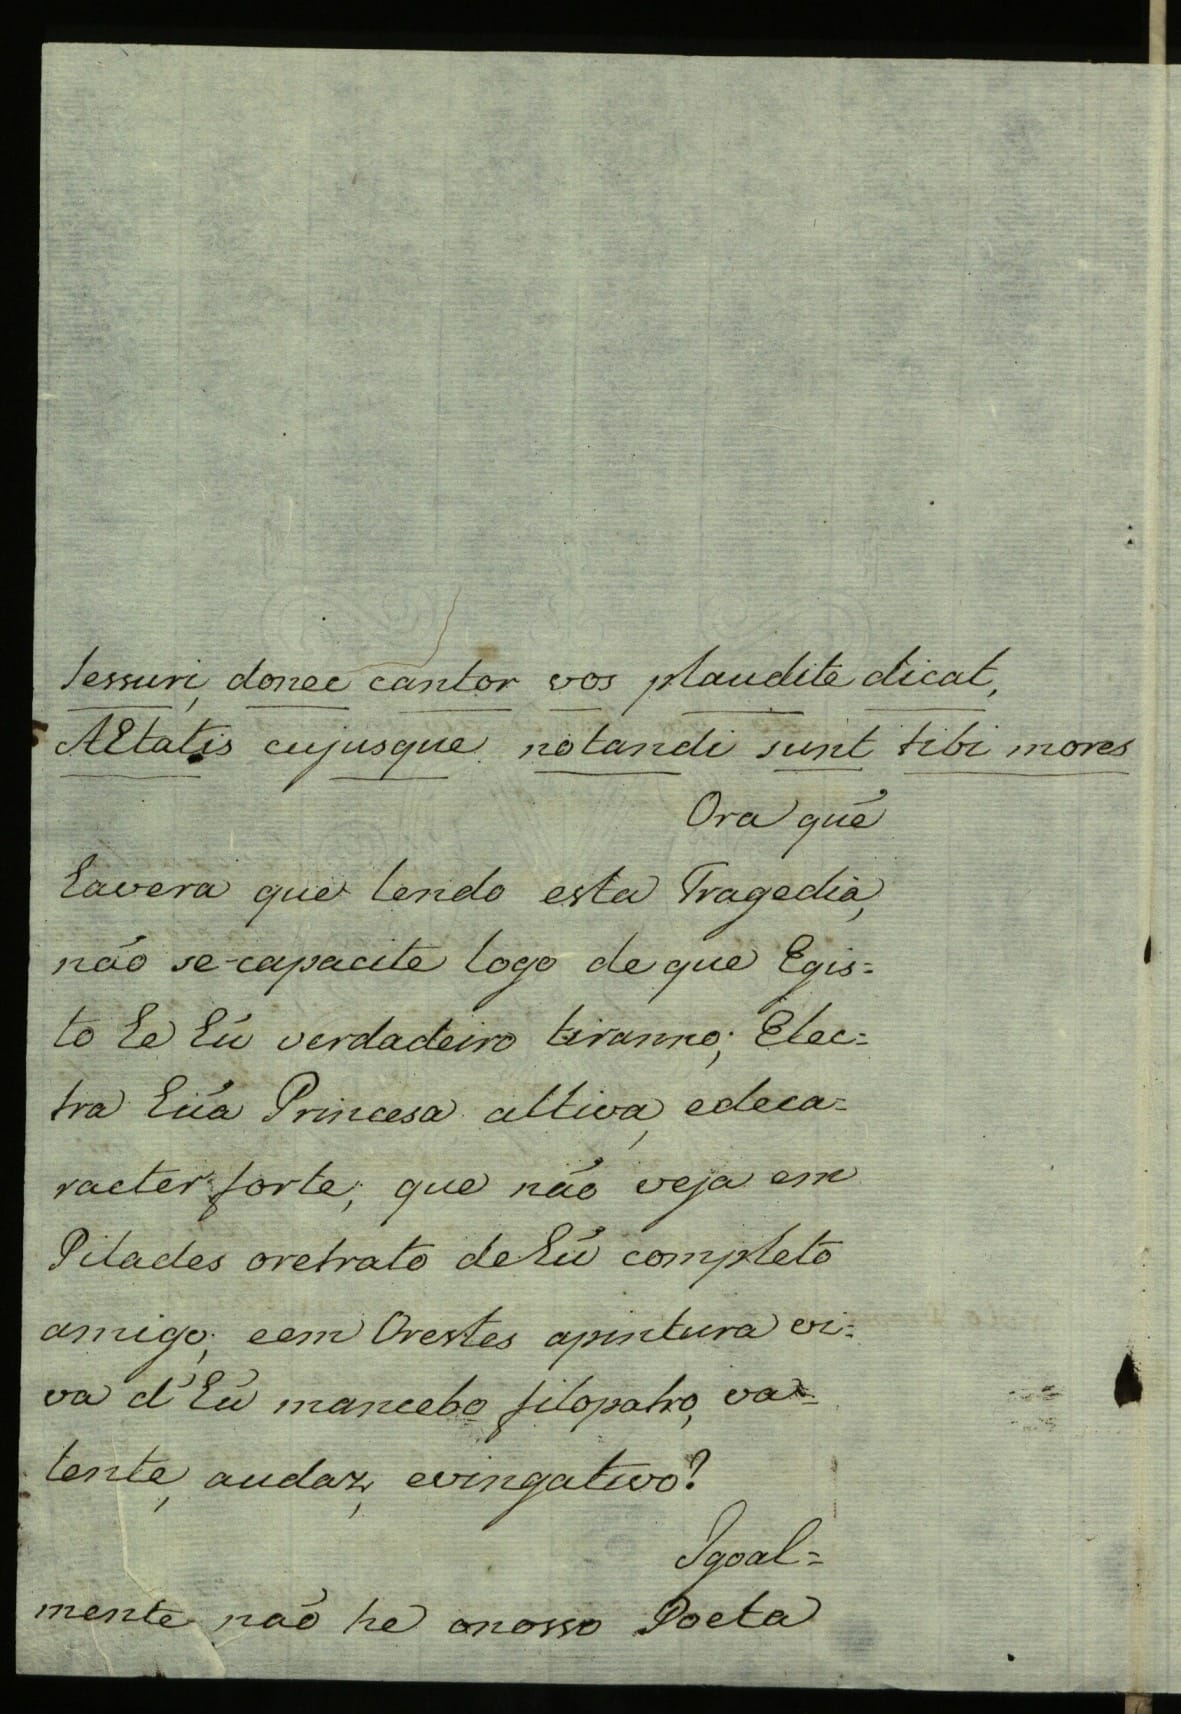 sessuri, donec cantor vos plaudite dicat,
AEtatis cujusque notandi sunt tibi mores
Ora quē
havera que lendo esta Tragedia,
não se-capacite logo de que Egis=
to he hũ verdadeiro tiranno; Elec=
tra hũa Princesa altiva, edeca=
racter forte; que não veja em
Pilades oretrato de hũ completo
amigo; eem Orestes apintura vi=
va d'hũ mancebo filopatro, va=
lente, audaz, evingativo?
Igoal=
mente não he onosso Poeta